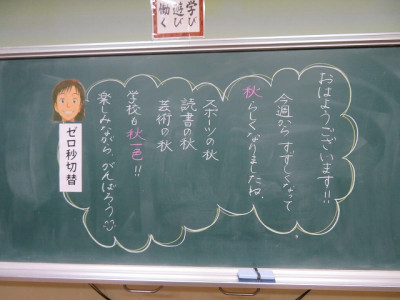 学び
遊び
働く
おはようございます!!
今週から すずしくなって
秋らしくなりましたね.
スポーツの秋
読書の秋
芸術の秋
学校も秋一色!!
楽しみながら がんばろう
ゼロ秒切替